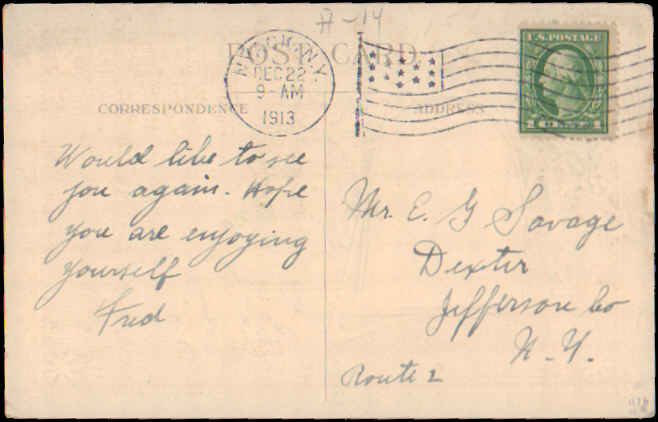 A-14
POST CARD
NYACK, N.Y.
DEC 22
9-AM
1913
U.S. POSTAGE
CORRESPONDENCE
ADDRESS
Would like to see
you again. Hope
you are enjoying
yourself
Fred
Mr. E. G Savage
Dexter
Jefferson Co
N. Y.
Route 2